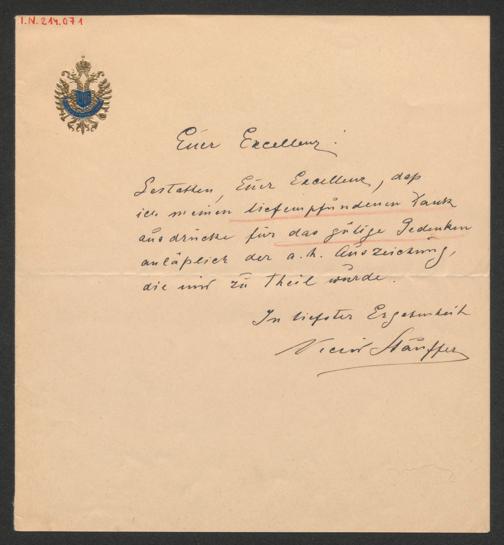 I.N. 214.071
Euer Excellenz!
Gestatten, Euer Excellenz, daß
ich meinen tiefempfundenen Dank
ausdrücke für das gütige Gedenken
anläßlich der a. h. Auszeichnung,
die mir zu Theil wurde.
In tiefster Ergebenheit
Victor Stauffer